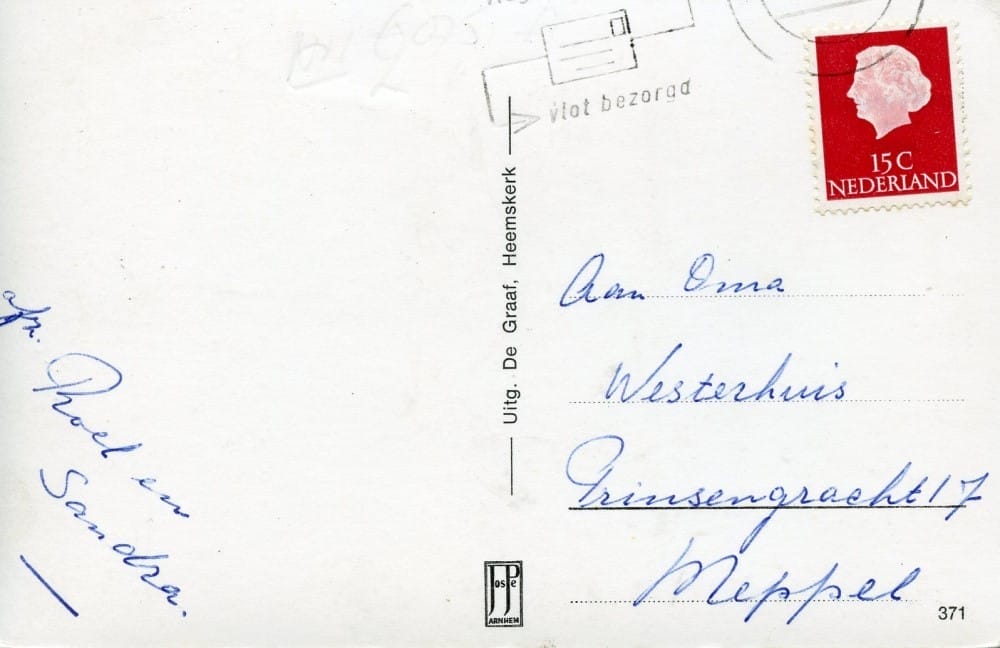 vlot bezorgd
15 C
NEDERLAND
Uitg. De Graaf, Heemskerk
Aan Oma
Westerhuis
Prinsengracht 17
Meppel
afz.
Roel en
Sandra.
JosPe
ARNHEM
371